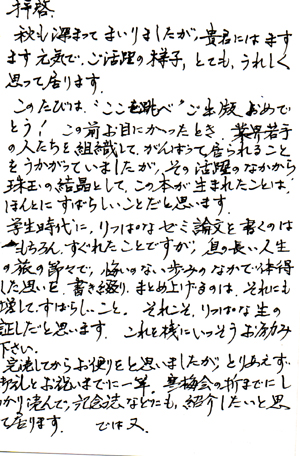 拝啓
秋も深まってまいりましたが、貴君にはます
ます元気で、ご活躍の様子、とても、うれしく
思って居ります。
このたびは、“ここを跳べ”ご出版おめで
とう！ この前お目にかかったとき、業界若手
の人たちを組織して、がんばって居られること
をうかがっていましたが、その活躍のなかから
珠玉の結晶として、この本が生まれたことは、
ほんとにすばらしいことだと思います。
学生時代に、りっぱなゼミ論文を書くのは
もちろん、すぐれたことですが、息の長い人生
の旅の節々で、悔いのない歩みのなかで体得
した思いを、書き綴り、まとめ上げるのは、それにも
増して、すばらしいこと。それこそ、りっぱな生の
証しだと思います。これを機にいっそうお励み
下さい。
完読してからお便りをと思いましたが、とりあえず、
御礼とお祝いまでに一筆。 梅会の折までにし
かり読んで、記念法などにも、紹介したいと思
って居ります。 では又、